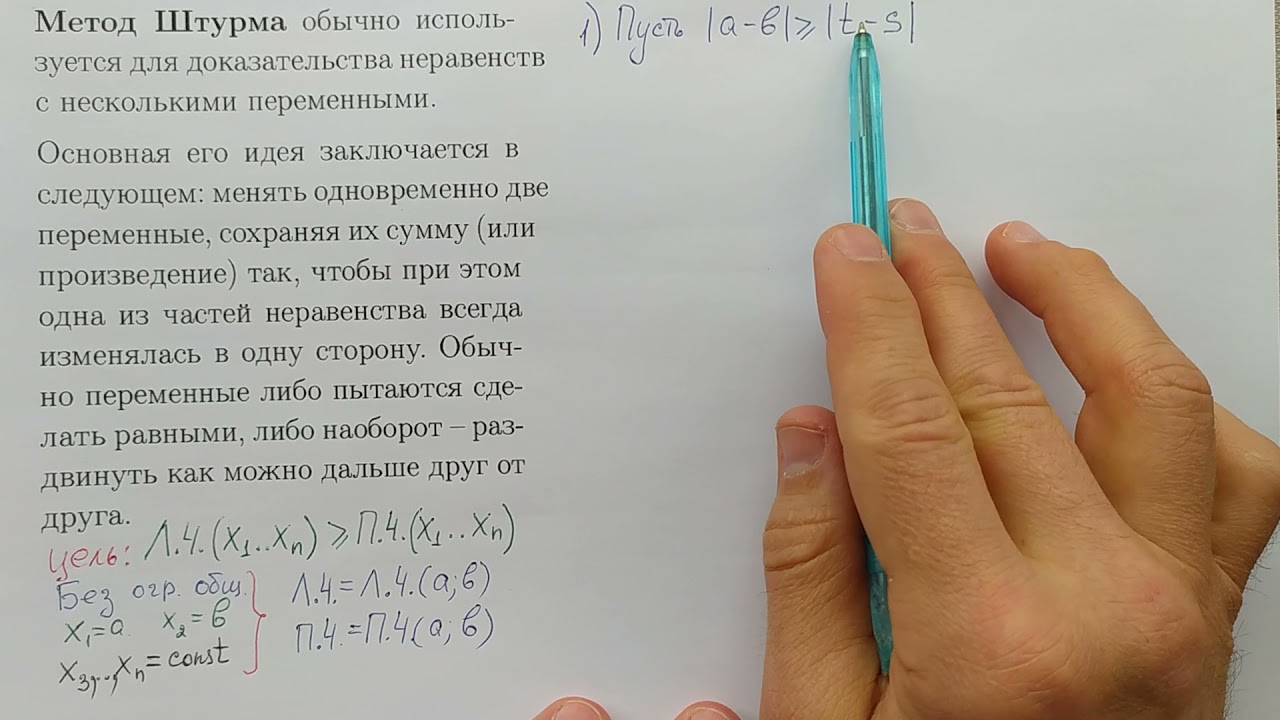 Метод Штурма обычно исполь-
зуется для доказательства неравенств
с несколькими переменными.
Основная его идея заключается в
следующем: менять одновременно две
переменные, сохраняя их сумму (или
произведение) так, чтобы при этом
одна из частей неравенства всегда
изменялась в одну сторону. Обыч-
но переменные либо пытаются сде-
лать равными, либо наоборот – раз-
двинуть как можно дальше друг от
друга.
Цель: Л.Ч.(x₁..xₙ) ⩾ П.Ч.(x₁..xₙ)
Без огр. общ.
x₁=a x₂=в
x₃,..,xₙ=const
Л.Ч.=Л.Ч.(a;в)
П.Ч.=П.Ч(a;в)
1) Пусть |a-в|⩾|t-s|